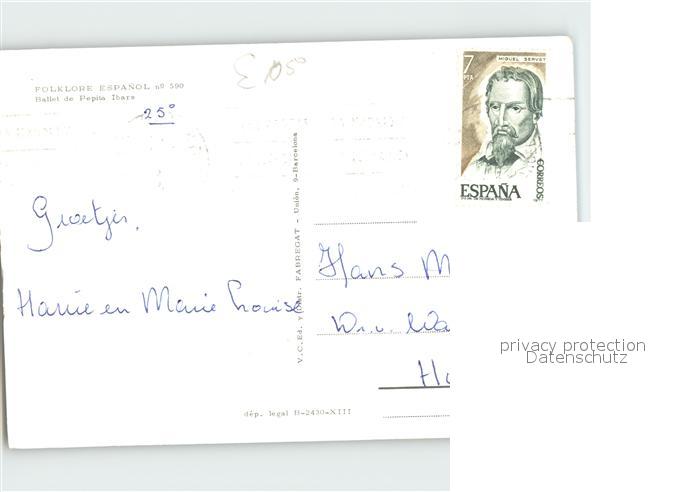 FOLKLORE ESPAÑOL nº 590
Ballet de Pepita Ibars
25º
7
PTA
MIGUEL SERVET
ESPAÑA
CORREOS
Groetjes,
Hannie en Marie Louise
V.C.Ed. y Distr. FABREGAT - Unión, 9-Barcelona
Hans M
W.v. Wa
dép. legal B-2430-XIII
privacy protection
Datenschutz